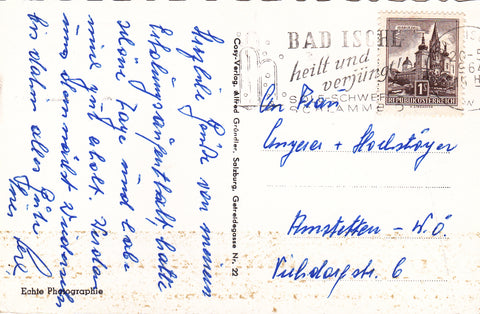 Herzliche Grüße von meinem
Erholungsaufenthalt, hatte
schöne Tage und habe
mich gut erholt. Werden
uns demnächst wiedersehn
bis dahin alles Gute
Ihre
Echte Photographie
Cosy-Verlag, Alfred Gründler, Salzburg, Getreidegasse Nr. 22
BAD ISCHL
heilt und
verjüngt
SOLE SCHWE
SCHLAMM
1S
REPUBLIK ÖSTERREICH
An Frau
Ungerer + Hochstöger
Amstetten - N.Ö.
Viehdorfstr. 6